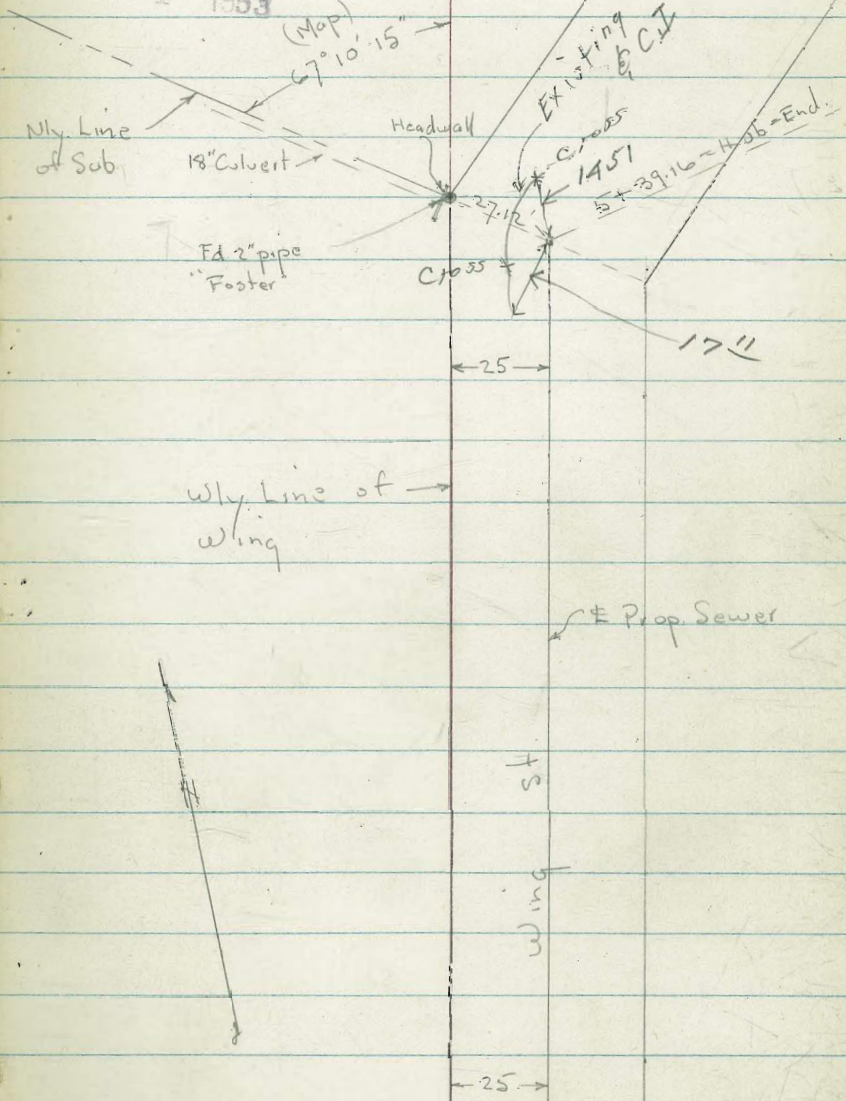 1953
(Map)
67° 10' 15"
Existing
℄ C.I
Nly. Line
of Sub
Headwall
Cross
18" Culvert
1451
5+39.16 = Hub = End.
27.12'
Fd 2" pipe
"Foster"
Cross
25
Wly. Line of
Wing
℄ Prop. Sewer
Wing St
25